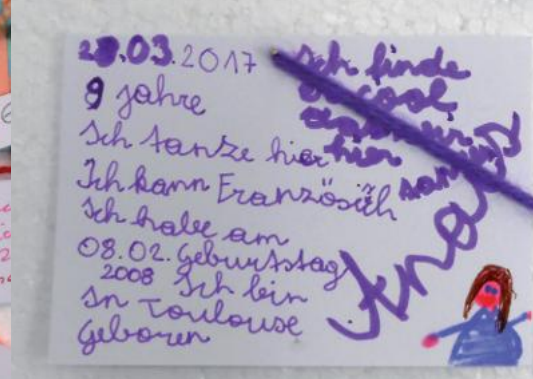 28.03.2017
9 Jahre
Ich tanze hier
Ich kann Französich
Ich habe am
08.02. Geburtstag
2008 Ich bin
in Toulouse
geboren
Ich finde
cool
hier